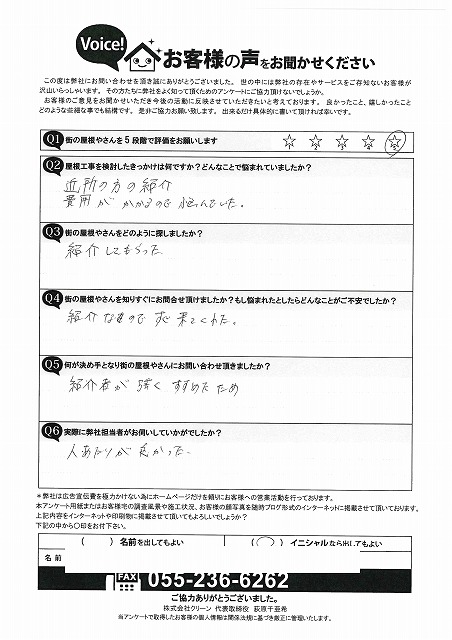 Voice! お客様の声をお聞かせください
この度は弊社にお問い合わせを頂き誠にありがとうございました。 世の中には弊社の存在やサービスをご存知ないお客様が
沢山いらっしゃいます。 その方たちに弊社をよく知って頂くためのアンケートにご協力頂けないでしょうか。
お客様のご意見をお聞かせいただき今後の活動に反映させていただきたいと考えております。 良かったこと、嬉しかったこと
どのような些細な事でも結構です。 是非ご協力お願い致します。 出来るだけ具体的に書いて頂ければ幸いです。
Q1 街の屋根やさんを5段階で評価をお願いします
Q2 屋根工事を検討したきっかけは何ですか?どんなことで悩まれていましたか?
近所の方の紹介
費用がかかるので悩んでいた。
Q3 街の屋根やさんをどのように探しましたか?
紹介してもらった
Q4 街の屋根やさんを知りすぐにお問合せ頂けましたか?もし悩まれたとしたらどんなことがご不安でしたか?
紹介なのですぐ来てくれた。
Q5 何が決め手となり街の屋根やさんにお問い合わせ頂きましたか?
紹介者が強くすすめたため
Q6 実際に弊社担当者がお伺いしていかがでしたか?
人あたりが良かった
*弊社は広告宣伝費を極力かけない為にホームページだけを頼りにお客様への営業活動を行っております。
本アンケート用紙またはお客様宅の調査風景や施工状況、お客様の顔写真を随時ブログ形式のインターネットに掲載させて頂いております。
上記内容をインターネットや印刷物に掲載させて頂いてもよろしいでしょうか?
下記の中から〇印をお付下さい。
( ) 名前を出してもよい (〇) イニシャルなら出してもよい
名前
FAX 055-236-6262
ご協力ありがとうございました。
株式会社クリーン 代表取締役 萩原千亜希
当アンケートで取得したお客様の個人情報は関係法規に基づき厳正に管理いたします。